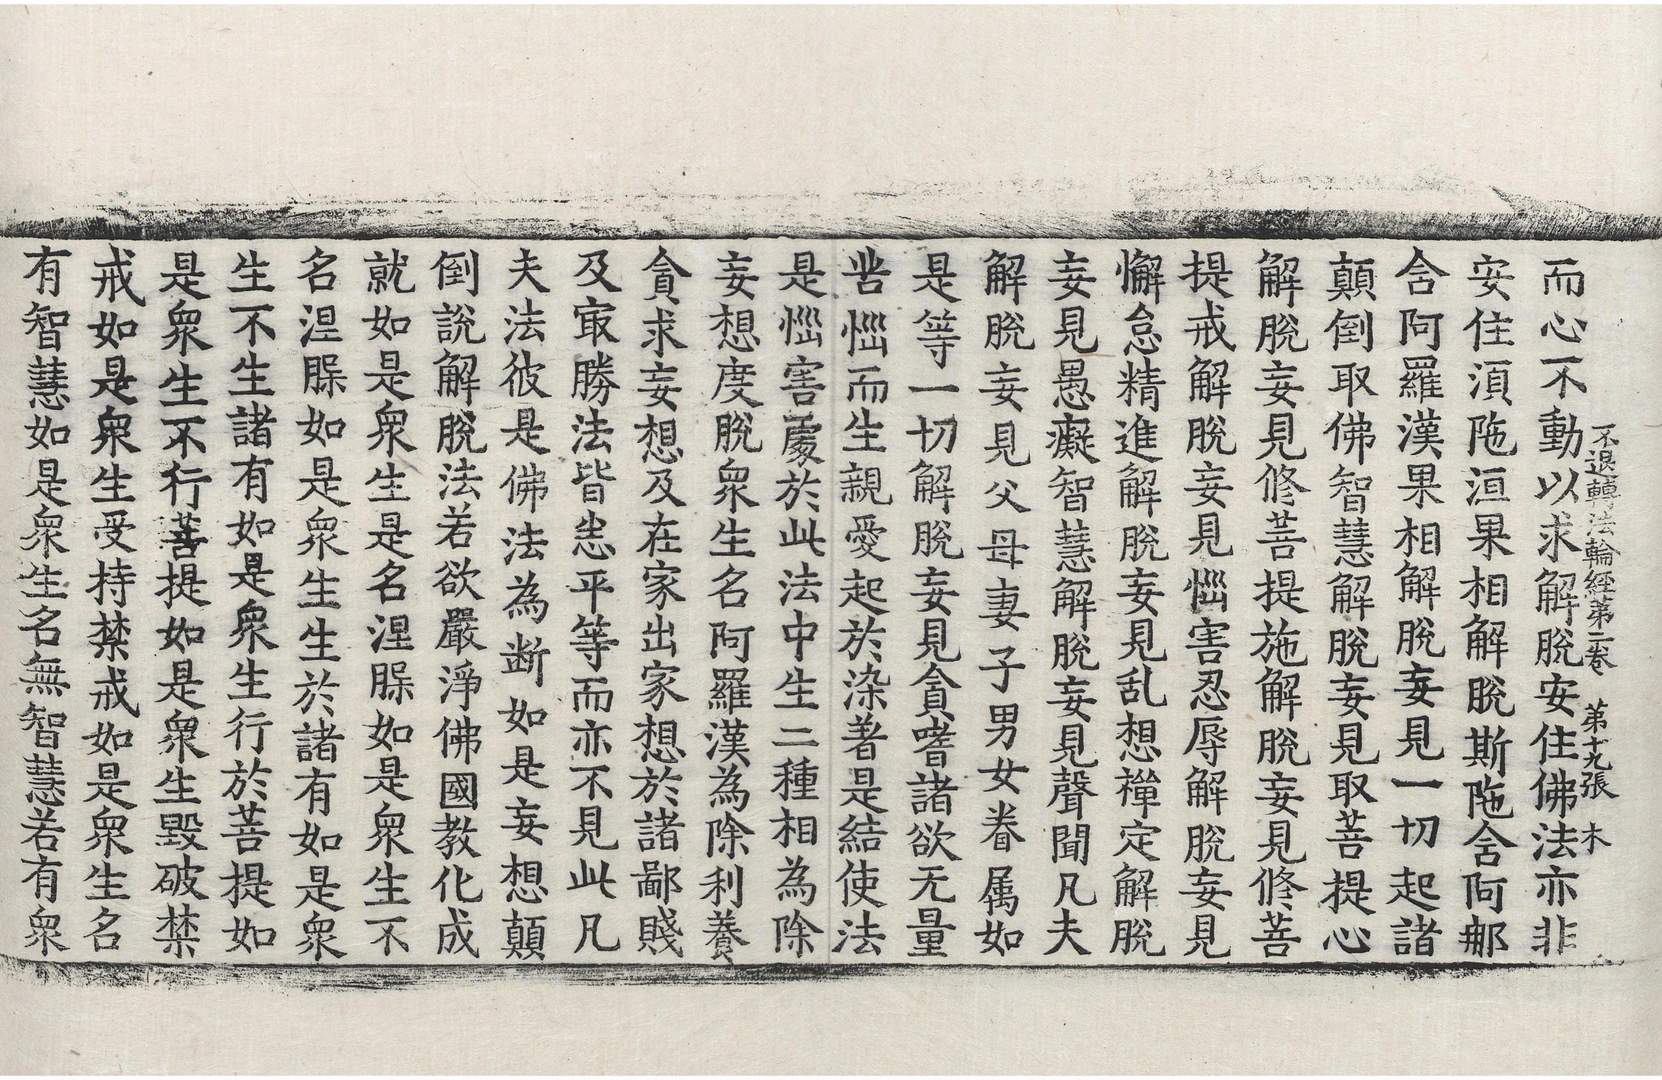 不退轉法輪經第二卷 第十九張 木
而心不動以求解脫安住佛法亦非
安住湏陁洹果相解脫斯陁含阿那
含阿羅漢果相解脫妄見一切起諸
顛倒取佛智慧解脫妄見取菩提心
解脫妄見修菩提施解脫妄見修菩
提戒解脫妄見𢛳害忍辱解脫妄見
懈怠精進解脫妄見乱想禪定解脫
妄見愚癡智慧解脫妄見聲聞凡夫
解脫妄見父母妻子男女眷属如
是等一切解脫妄見貪嗜諸欲无量
皆𢛳而生親愛起於染著是結使法
是𢛳害處於此法中生二種相為除
妄想度脫衆生名阿羅漢為除利養
貪求妄想及在家出家想於諸鄙賤
及㝡勝法皆悉平等而亦不見此凡
夫法彼是佛法法為断如是妄想顛
倒說解脫法若欲嚴淨佛國教化成
就如是衆生是名涅槃如是衆生不
名涅槃如是衆生生於諸有如是衆
生不生諸有如是衆生行於菩提如
是衆生不行菩提如是衆生毀破禁
戒如是衆生受持禁戒如是衆生名
有智慧如是衆生名無智慧若有衆